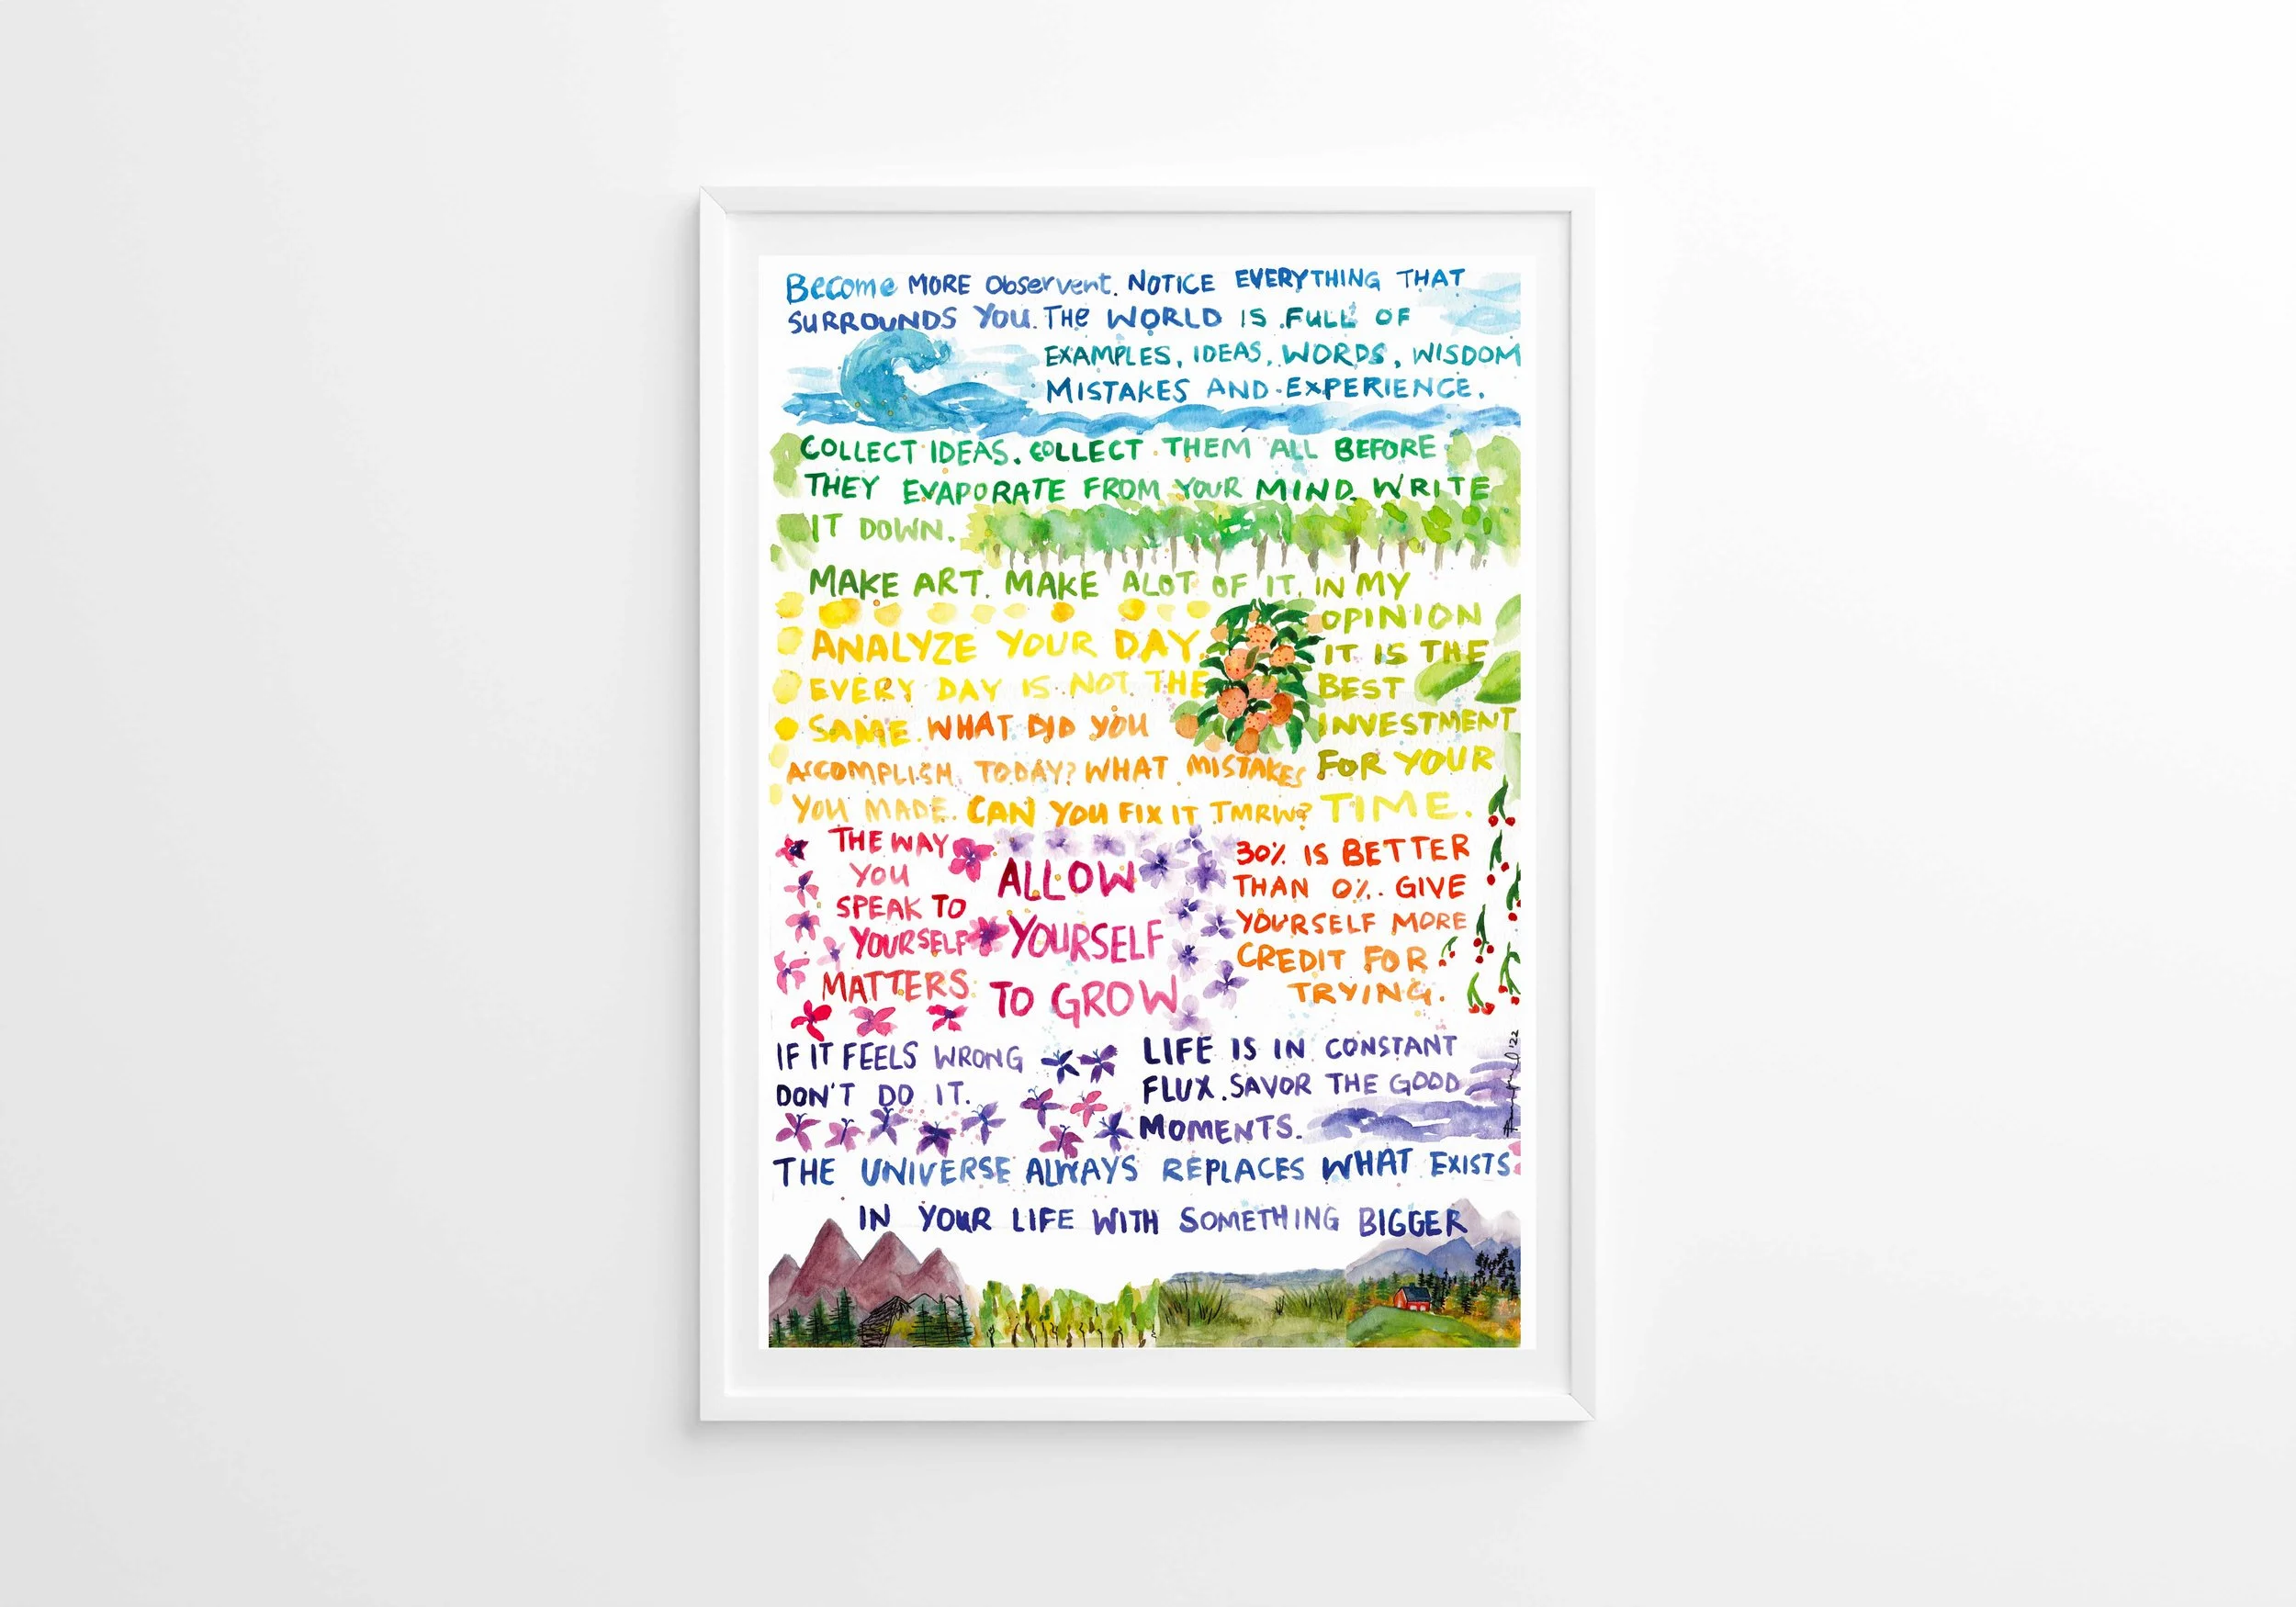 Become MORE Observent. NOTICE EVERYTHING THAT
SURROUNDS YOU. THE WORLD IS FULL OF
EXAMPLES, IDEAS, WORDS, WISDOM
MISTAKES AND EXPERIENCE.
COLLECT IDEAS. COLLECT THEM ALL BEFORE
THEY EVAPORATE FROM YOUR MIND. WRITE
IT DOWN.
MAKE ART. MAKE ALOT OF IT. IN MY
OPINION
IT IS THE
BEST
INVESTMENT
FOR YOUR
TIME.
ANALYZE YOUR DAY.
EVERY DAY IS NOT THE
SAME. WHAT DID YOU
ACCOMPLISH TODAY? WHAT MISTAKES
YOU MADE. CAN YOU FIX IT TMRW?
THE WAY
YOU
SPEAK TO
YOURSELF
MATTERS.
ALLOW
YOURSELF
TO GROW
30% IS BETTER
THAN 0%. GIVE
YOURSELF MORE
CREDIT FOR
TRYING.
IF IT FEELS WRONG
DON'T DO IT.
LIFE IS IN CONSTANT
FLUX. SAVOR THE GOOD
MOMENTS.
THE UNIVERSE ALWAYS REPLACES WHAT EXISTS
IN YOUR LIFE WITH SOMETHING BIGGER
'22